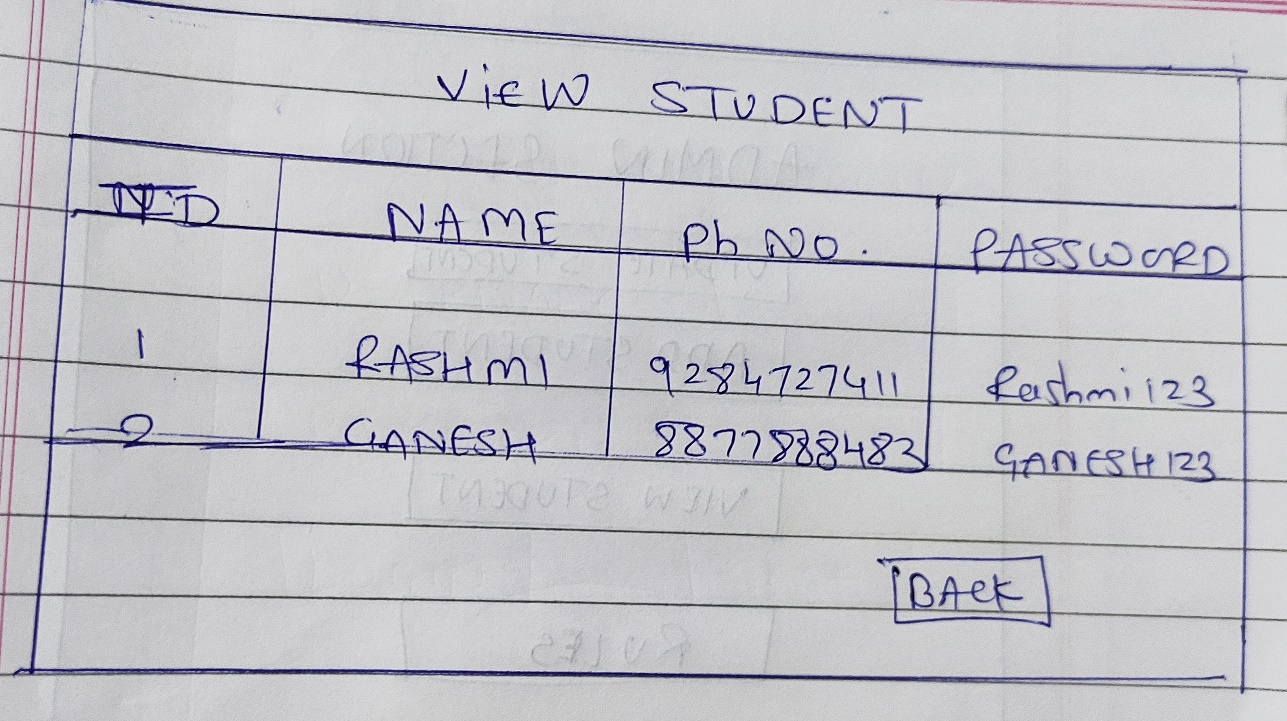 VIEW STUDENT
ID NAME Ph NO. PASSWORD
1 RASHMI 9284727411 Rashmi123
2 GANESH 8877888483 GANESH123
BACK